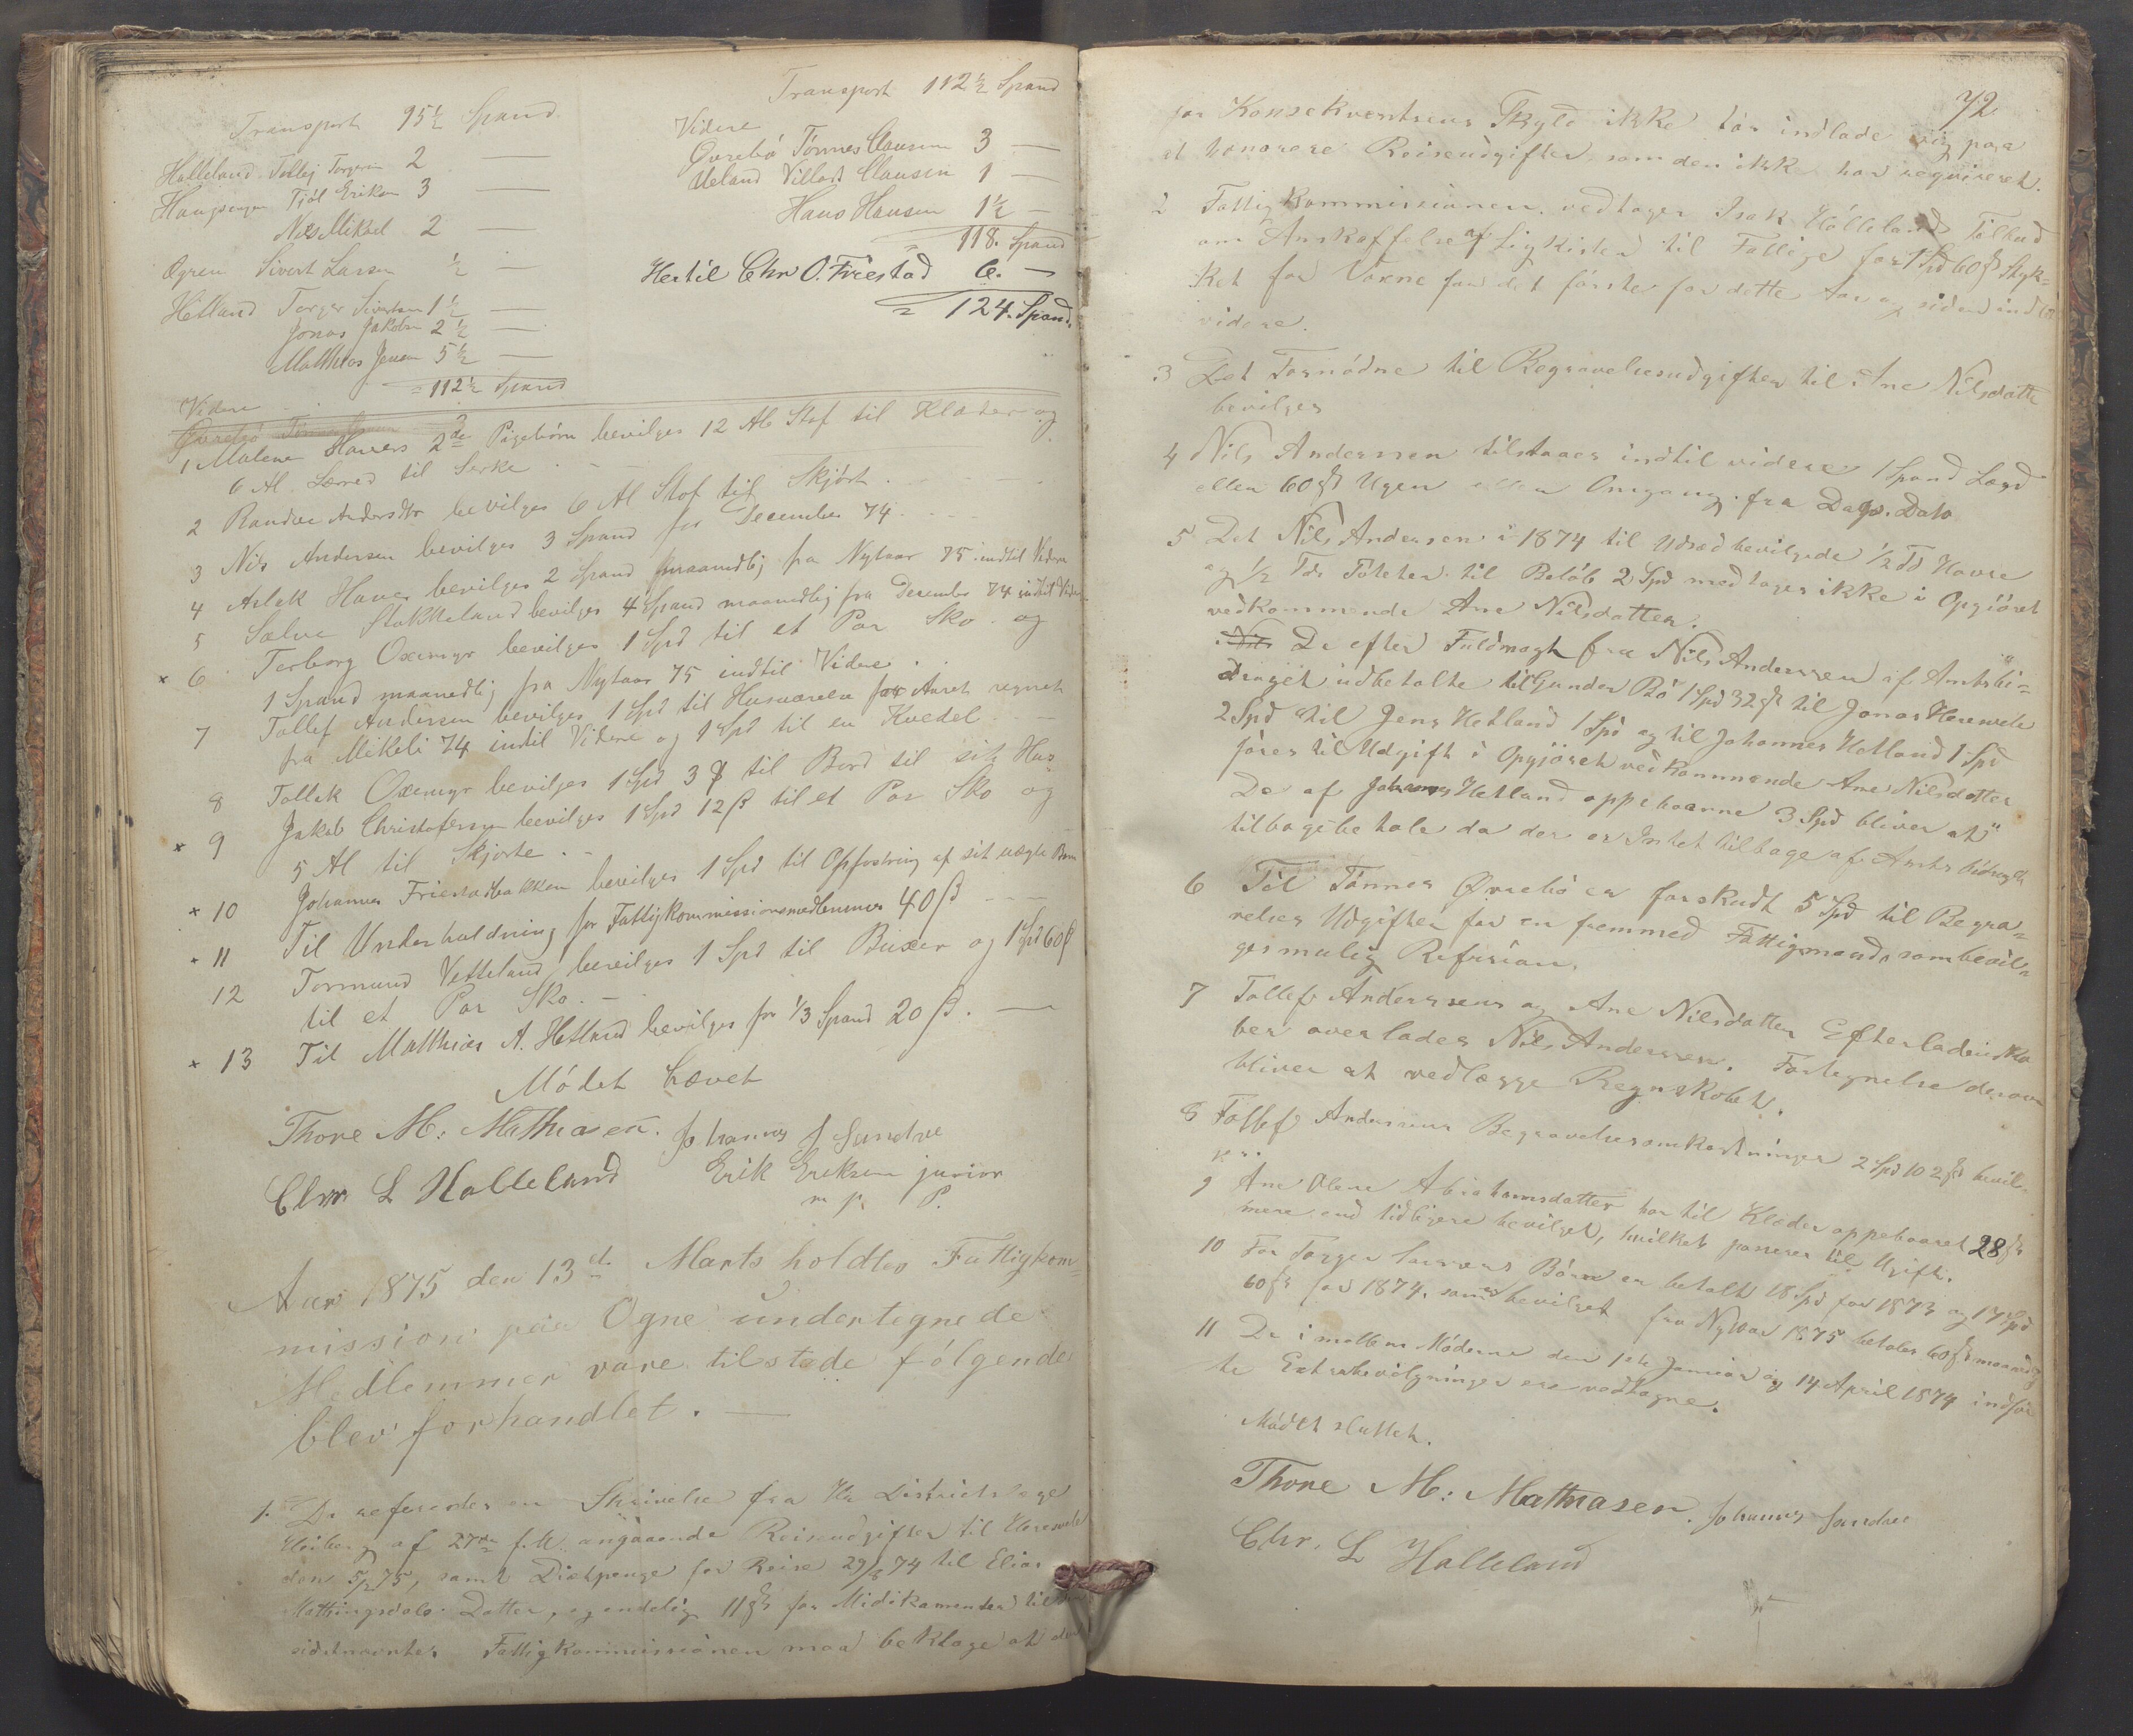 Transport 95½ Spand
Halleland Tollej Torgersen 2 —
Haugsengen Tjöl Eriksen 3 —
Nils Mikal 2 —
Ogren Sivert Larsen ½ —
Hetland Torger Sivertsen 1½ —
Jonas Jakobsen 2½ —
Matthias Jensen 5½ —
= 112½ Spand
Videre
Transport 112½ Spand
Videre
Øvrebö Tönnes Clausen 3 —
Ueland Villads Clausen 1 —
Hans Hansen 1½ —
= 118. Spand
Hertil Chr O. Friestad 6. —
= 124. Spand.
1 Malene Havers 2de Pigebörn bevilges 12 Al Stof til Klæder og
6 Al. Lærred til Serke . — —
2 Randve Andersdtr bevilges 6 Al Stof til Skjört .
3 Nils Andersen bevilges 3 Spand for December 74 . . .
4 Aslak Haver bevilges 2 Spand maanedlig fra Nytaar 75 indtil Videre
5 Salve Stokkeland bevilges 4 Spand maanedlig fra December 74 indtil Videre
× 6 Terborg Oxemyr bevilges 1 Spd til et Par Sko og
1 Spand maanedlig fra Nytaar 75 indtil Videre .
7 Tollef Andersen bevilges 1 Spd til Husværelse for Aaret regnet
fra Mikeli 74 indtil Videre og 1 Spd til en Kvedel
8 Tollak Oxemyr bevilges 1 Spd 3 ß til Bord til sit Hus
× 9 Jakob Christofersen bevilges 1 Spd 12 ß til et Par Sko og
5 Al til Skjorte . —
× 10 Johannes Friestadbakken bevilges 1 Spd til Opfostring af sit uægte Barn
× 11 Til Underholdning for Fattigkommissionsmedlemmer 40 ß — —
12 Tormund Vetteland bevilges 1 Spd til Buxer og 1 Spd 60 ß
til et Par Sko. —
× 13 Til Matthias A. Hetland bevilges for ⅓ Spand 20 ß. —
Mödet hævet
Thore M: Mathiasen. Johannes J Sandve
Chr L Halleland Erik Eriksen junior
m p. P.
Aar 1875 den 13de Marts holdtes Fattigkom=
mission paa Ogne undertegnede
Medlemmer vare tilstede følgende
blev forhandlet. —
1. Da refereredes en Skrivelse fra Hr Districtslæge
af 27de f. M. angaaende Reiseudgifter til Hereswele
den 5/2 75, samt Diætpenge for Reise 29/8 74 til Elias
Mattingsdals Datter, og endelig 11 ß for Midikamenter til den
sidstnævnte. Fattigkommissionen maa beklage at den
72
for Konsekventsens Skyld ikke tör indlade sig paa
at honorere Reiseudgifter, som den ikke har requireret.
2 Fattigkommissionen vedtager Isak Hölleland Tilbud
om Anskaffelse af Ligkister til Fattige for 1 Spd 60 ß Styk=
ket for Voxne for det förste for dette Aar og siden indtil
videre.
3 Det Fornödne til Begravelsesudgifter til Ane Nilsdatter
bevilges
4 Nils Anderssen tilstaaes indtil videre 1 Spand Lægd
eller 60 ß Ugen eller Omgang fra Dags. Dato
5 Det Nils Andersen i 1874 til Udsæd bevilgede ½ Td Havre
og ½ Td. Poteter til Belöb 2 Spd medtages ikke i Opgjöret
vedkommende Ane Nilsdatter.
Nils De efter Fuldmagt fra Nils Anderssen af Amtsbi=
draget udbetalte til Gunder Bö 1 Spd 32 ß til Jonas Hereswele
2 Spd til Jens Hetland 1 Spd og til Johannes Hetland 1 Spd
föres til Udgift i Opgjöret vedkommende Ane Nilsdatter
De af Johannes Hetland oppebaarne 3 Spd bliver at
tilbagebetale da der er Intet tilbage af Amtsbidraget
6 Til Tönnes Øvrebö er forskudt 5 Spd til Begra=
velses Udgifter for en fremmed Fattigmand, som bevil=
ges mulig Refusion.
7 Tollef Anderssens og Ane Nilsdatter Efterladenska
ber overlades Nils Anderssen. Fortegnelse derover
bliver at vedlægge Regnskabet.
8 Tollef Anderssens Begravelsesomkostninger 2 Spd 102 ß bevil=
ges.
9 Ane Olene Abrahamsdatter har til Klæder oppebaaret 28 ß
mere end tidligere bevilget, hvilket passerer til Udgift.
10 For Torger Börn er betalt 18 Spd for 1873 og 17 Spd
60 ß for 1874. som er bevilget fra Nytaar 1875 betales 60 ß maanedlig
11 De i mellem Möderne den 1ste Januar og 14 April 1874 indför
te Extrabevilgninger ere vedtagne.
Mödet sluttet.
Thore M: Mathiasen. Johannes Sandve
Chr. L Halleland